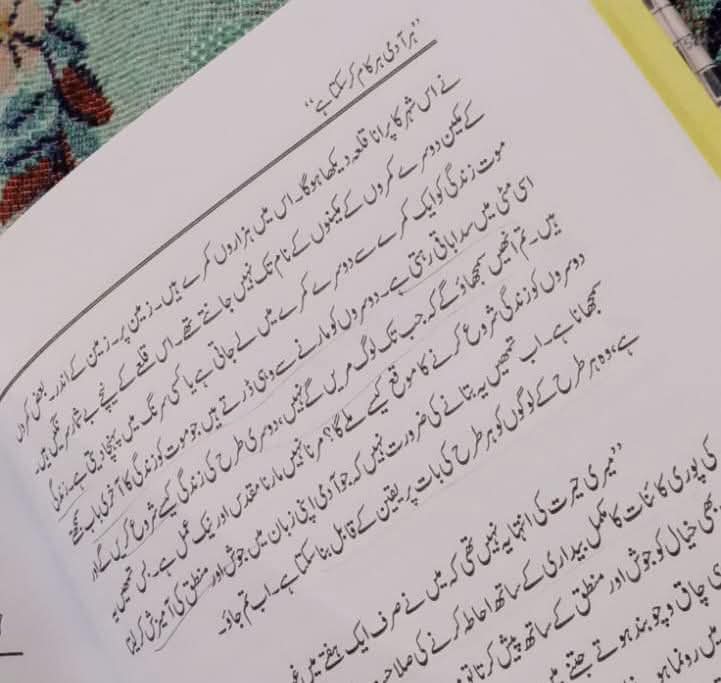 ”ہر آدمی ہر کام کر سکتا ہے“
نے اس شہر کا پرانا قلعہ دیکھا ہوگا۔ اس میں ہزاروں کمرے ہیں۔ زمین پر۔ زمین کے اندر۔ بعض کمروں
کے مکین دوسرے کمروں کے مکینوں کے نام تک نہیں جانتے تھے۔ اس قلعے کے نیچے بے شمار سرنگیں ہیں۔
موت زندگی کو ایک کمرے سے دوسرے کمرے میں لے جاتی ہے یا کسی سرنگ میں پہنچا دیتی ہے۔ زندگی
اسی مٹی میں سدا باقی رہتی ہے۔ دوسروں کو مارنے سے وہی ڈرتے ہیں جو موت کو زندگی کا آخری باب سمجھتے
ہیں۔ تم انھیں سمجھاؤ گے کہ جب تک لوگ مریں گے نہیں، دوسری طرح کی زندگی کیسے شروع کریں گے اور
دوسروں کو زندگی شروع کرنے کا موقع کیسے ملے گا؟ مرنا نہیں مارنا مقدس اور نیک عمل ہے۔ بس تمھیں یہ
سمجھانا ہے۔ اب تمھیں یہ بتانے کی ضرورت نہیں کہ جو آدمی اپنی زبان میں جوش اور منطق کی آمیزش کر لیتا
ہے، وہ ہر طرح کے لوگوں کو ہر طرح کی بات پر یقین کے قابل بنا سکتا ہے۔ اب تم جاؤ۔
”میری حیرت کی انتہا یہ نہیں تھی کہ میں نے صرف ایک ہفتے میں
کی پوری کائنات کا مکمل بیداری کے ساتھ احاطہ کرنے کی
بھی خیال کو جوش اور منطق کے ساتھ پیش کرتا
چاق و چوبند ہوتے جتنے
میں رونما